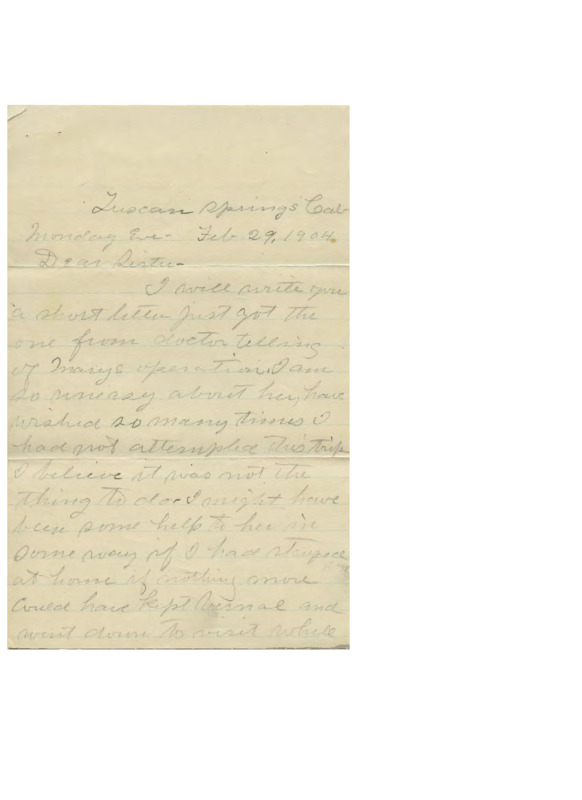 Tuscan Springs Cal
Monday Eve- Feb 29, 1904.
Dear Sister-
I will write you
a short letter just got the
one from doctor telling
of Marys operation. I am
so uneasy about her, have
wished so many times I
had not attempted this trip
I believe it was not the
thing to do. I might have
been some help to her in
some way if I had stayed
at home if nothing more
could have kept Vernal and
went down to visit while